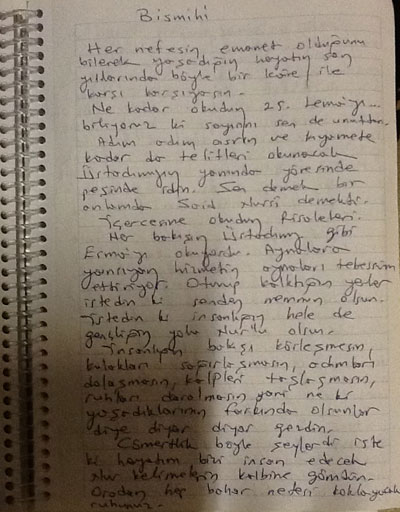 Bismihi
Her nefesin, emanet olduğunu
bilerek yaşadığın hayatın son
yıllarında böyle bir küre ile
karşı karşıyasın.
Ne kadar okudun 25. Lem'ayı...
biliyoruz ki sayısını sen de unuttun.
Adım adım asrın ve kıyamete
kadar da telifleri okunacak
Üstadımızın yanında yöresinde
peşinde idin. Sen demek bir
anlamda Said Nursi demekti.
içercesine okudun Risaleleri.
Her bakışın Üstadım gibi
Esma'yı okuyordu. Aynalara
yansıyan hizmetin aynaları tebessüm
ettiriyor. Oturup kalktığın yerler
istedin ki senden memnun olsun.
İstedin ki insanlığın hele de
gençliğin yolu Nur'lu olsun.
İnsanlığın bakışı körleşmesin,
kulakları sağırlaşmasın, adımları
dolaşmasın, kalpleri taşlaşmasın,
ruhları daralmasın yani ne ki
yaşadıklarının farkında olsunlar
diye diyar diyar gezdin.
Cömertlik böyle şeylerdir işte
ki hayatım bizi insan edecek
Nur kelimelerin kalbine gömdün.
Oradan her bahar nefesi koklayacak
ruhumuz.